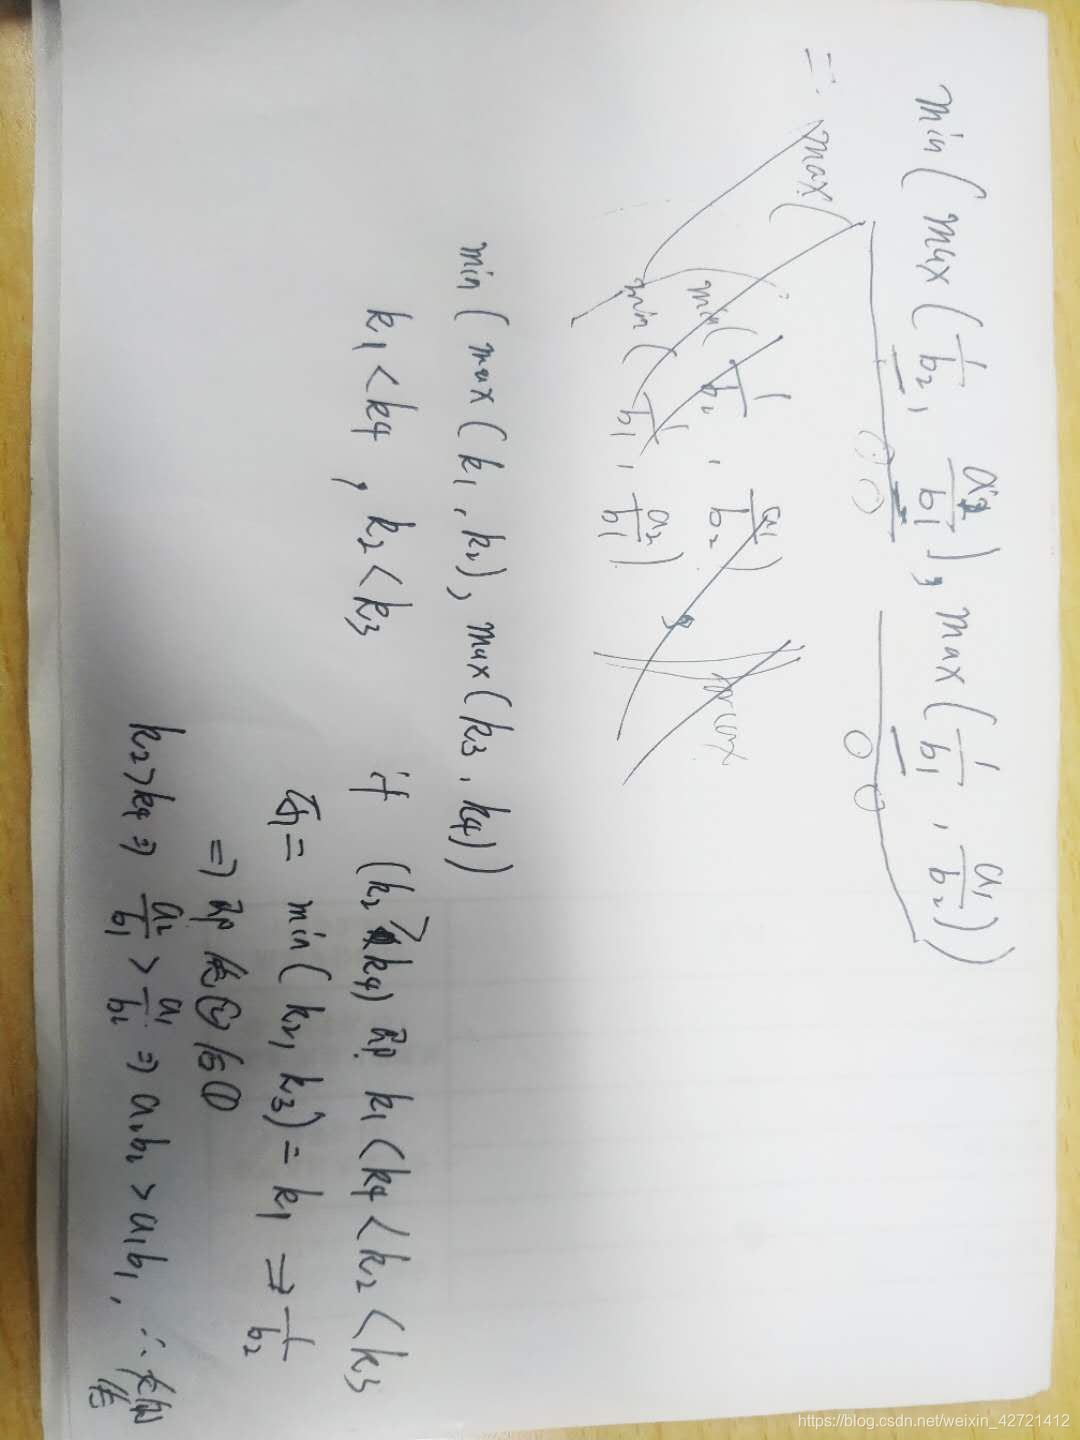 min ( max ( 1/b2, a2/b1 ), max ( 1/b1, a1/b2 ) )
= max (
min ( 1/b2, a1/b2 )
min ( 1/b1, a2/b1 )
min ( max ( k1, k2 ), max ( k3, k4 ) )
k1 < k4 , k2 < k3 if ( k2 > k4 ) 即 k1 < k4 < k2 < k3
min ( k2, k3 ) = k1 ⇒ 1/b2
⇒ 即
k2 > k4 ⇒ a2/b1 > a1/b2 ⇒ a2b2 > a1b1, ∴
https://blog.csdn.net/weixin_42721412